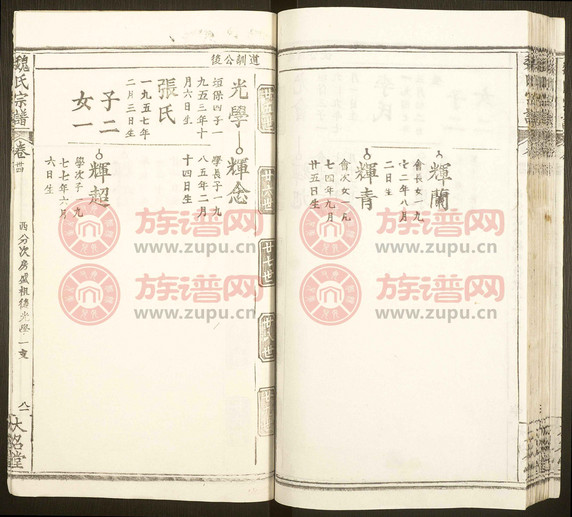 輝蘭
會長女一九
七二年八月
二日生
輝青
會次女一九
七四年九月
廿五日生
廿五世
廿六世
廿七世
廿八世
道訓公後
光學
須保四子一
九五三年十
月六日生
張氏
一九五七年
二月三日生
子二
女一
輝念
學長子一九
八五年二月
十四日生
輝超
學次子一九
七七年六月
六日生
魏氏宗譜
卷四
大名堂
族谱网
www.zupu.cn
族谱网
www.zupu.cn
族谱网
www.zupu.cn
族谱网
www.zupu.cn